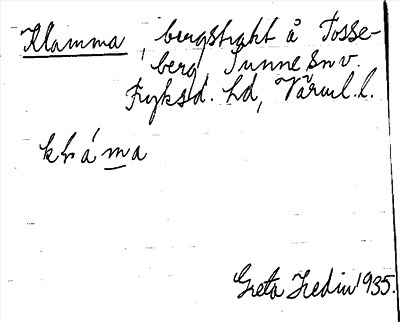 Klamma, bergstrakt å Tosse-
berg, Sunne snv.
Fryksd. hd, Värml. l.
kláma
Greta Hedin 1935.